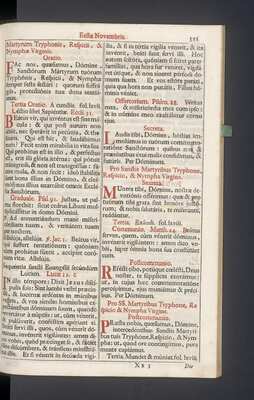 Festa Novembris. 555
Martyrum Tryphonis, Respicii, &
Nymphæ Virginis.
Oratio.
FAC nos, quæsumus, Dómine,
Sanctórum Mártyrum tuórum
Tryphónis, Respícii, & Nymphæ
semper festa sectári : quorum suffrá-
giis, protectiónis tuæ dona
Per Dóminum.
Tertia Oratio. A cunctis. sol. Sevit.
Léctio libri Sapiéntiæ. Eccli. 31.
BEátus vir, qui invéntus est sine má-
cula : & qui post aurum non
ábiit, nec sperávit in pecúnia, &
Quis est hic, & laudábimus
eum? Fecit enim mirabília in vita sua.
Qui probátus est in illo, & perféctus
est, erit illi glória ætérna : qui pótuit
tránsgredi, & non est transgréssus : fá-
cere mala, & non fecit : ídeo stabilíta
sunt bona illíus in Dómino, & eleë-
mósynas illíus enarrábit omnis Ecclé-
sia Sanctórum.
Graduale. Psal. 91. Justus, ut pal-
ma florébit : sicut cedrus Líbani mul-
tiplicábitur in domo Dómini.
℣. Ad annuntiándum mane miseri-
córdiam tuam, & veritátem tuam
per noctem.
Allelúja, allelúja. ℣. Jac. 1. Beátus vir,
qui suffert tentatiónem : quóniam
cùm probátus fúerit accípiet coró-
nam vitæ. Allelúja.
Sequéntia sancti Evangélii secúndùm
Lucam. Lucæ 12. c
IN illo témpore : Dixit Jesus discí-
pulis suis : Sint lumbi vestri præcín-
cti, & lucérnæ ardéntes in mánibus
vestris, & vos símiles homínibus ex-
spectántibus dóminum suum, quando
revertátur à núptiis : ut, cùm vénerit,
& pulsáverit, conféstim apériant ei.
Beáti servi illi, quos, cùm vénerit dó-
minus, invénerit vigilántes : amen di-
co vobis, quòd præcínget se, & fáciet
illos discúmbere, & tránsiens mini-
strábit illis. Et si vénerit in secúnda vigí-
lia, & si in tértia vigília vénerit, & ita
invénerit, beáti sunt servi illi. Hoc
autem scitóte, quóniam si sciret pater-
famílias, qua hora fur veníret, vigilá-
ret útique, & non síneret pérfodi do-
mum suam. Et vos estóte paráti,
quia qua hora non putátis, Fílius hó-
minis véniet.
Offertorium. Psal. 88. Véritas
mea, & misericórdia mea cum ipso :
& in nómine meo exaltábitur cornu
ejus.
Secreta.
LAudis tibi, Dómine, hóstias im-
molámus in tuórum commemora-
tióne Sanctórum : quibus nos &
præséntibus éxui malis confídimus, &
futúris. Per Dóminum.
Pro sanctis Martyribus Tryphone,
Respicio, & Nympha Virgine.
Secreta.
MUnera tibi, Dómine, nostræ de-
votiónis offérimus : quæ & pro
tuórum tibi grata sint honóre justó-
rum, & nobis salutária, te miseránte
reddántur.
Tertia, Exáudi. sol. Sevit.
Communio. Matth. 24. Beátus
servus, quem, cùm vénerit dóminus,
invénerit vigilántem : amen dico vo-
bis, super ómnia bona sua constítuet
eum.
Postcommunio.
REfécti cibo, potúque cœlésti, Deus
noster, te súpplices exorámus :
ut, in cujus hæc commemoratióne
percépimus, ejus muniámur & préci-
bus. Per Dóminum.
Pro SS. Martyribus Tryphone, Re-
spicio & Nympha Virgine.
Postcommunio.
PRæsta nobis, quæsumus, Dómine,
intercedéntibus Sanctis Martýri-
bus tuis Tryphóne, Respício, & Nym-
pha: ut, quod ore contíngimus, pura
mente capiámus.
Tertia, Mundet & múniat. sol. Sevit.
Die